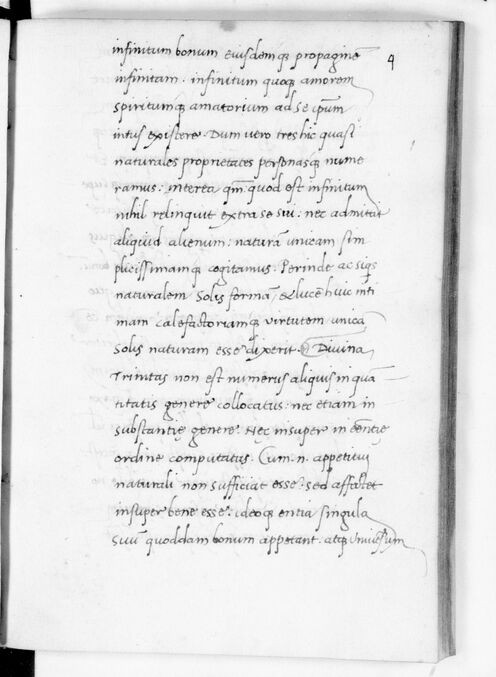 9
infinitum bonum eiusdemq; propaginē
infinitam. infinitum quoq; amorem
spiritumq; amatorium ad se ip̄um
intus existere. Dum vero tres hic quasi
naturales proprietates personasq; nume
ramus: interea qm̄ quod est infinitum
nihil relinquit extra se sui: nec admittit
aliquid alienum: naturā unicam sim
plicissimamq; cogitamus. Perinde ac siq̄s
naturalem Solis formā, & lucē huic inti
mam calefactoriamq; virtutem unicā
Solis naturam esse dixerit. Divina
Trinitas non est numerus aliquis in quā
titatis genere collocatus: nec etiam in
substantię genere. Nec insuper in
ordine computatus. Cum .n. appetitui
naturali non sufficiat esse: sed affectet
insuper bene esse: ideoq; entia singula
suū quoddam bonum appetant: atq; universum